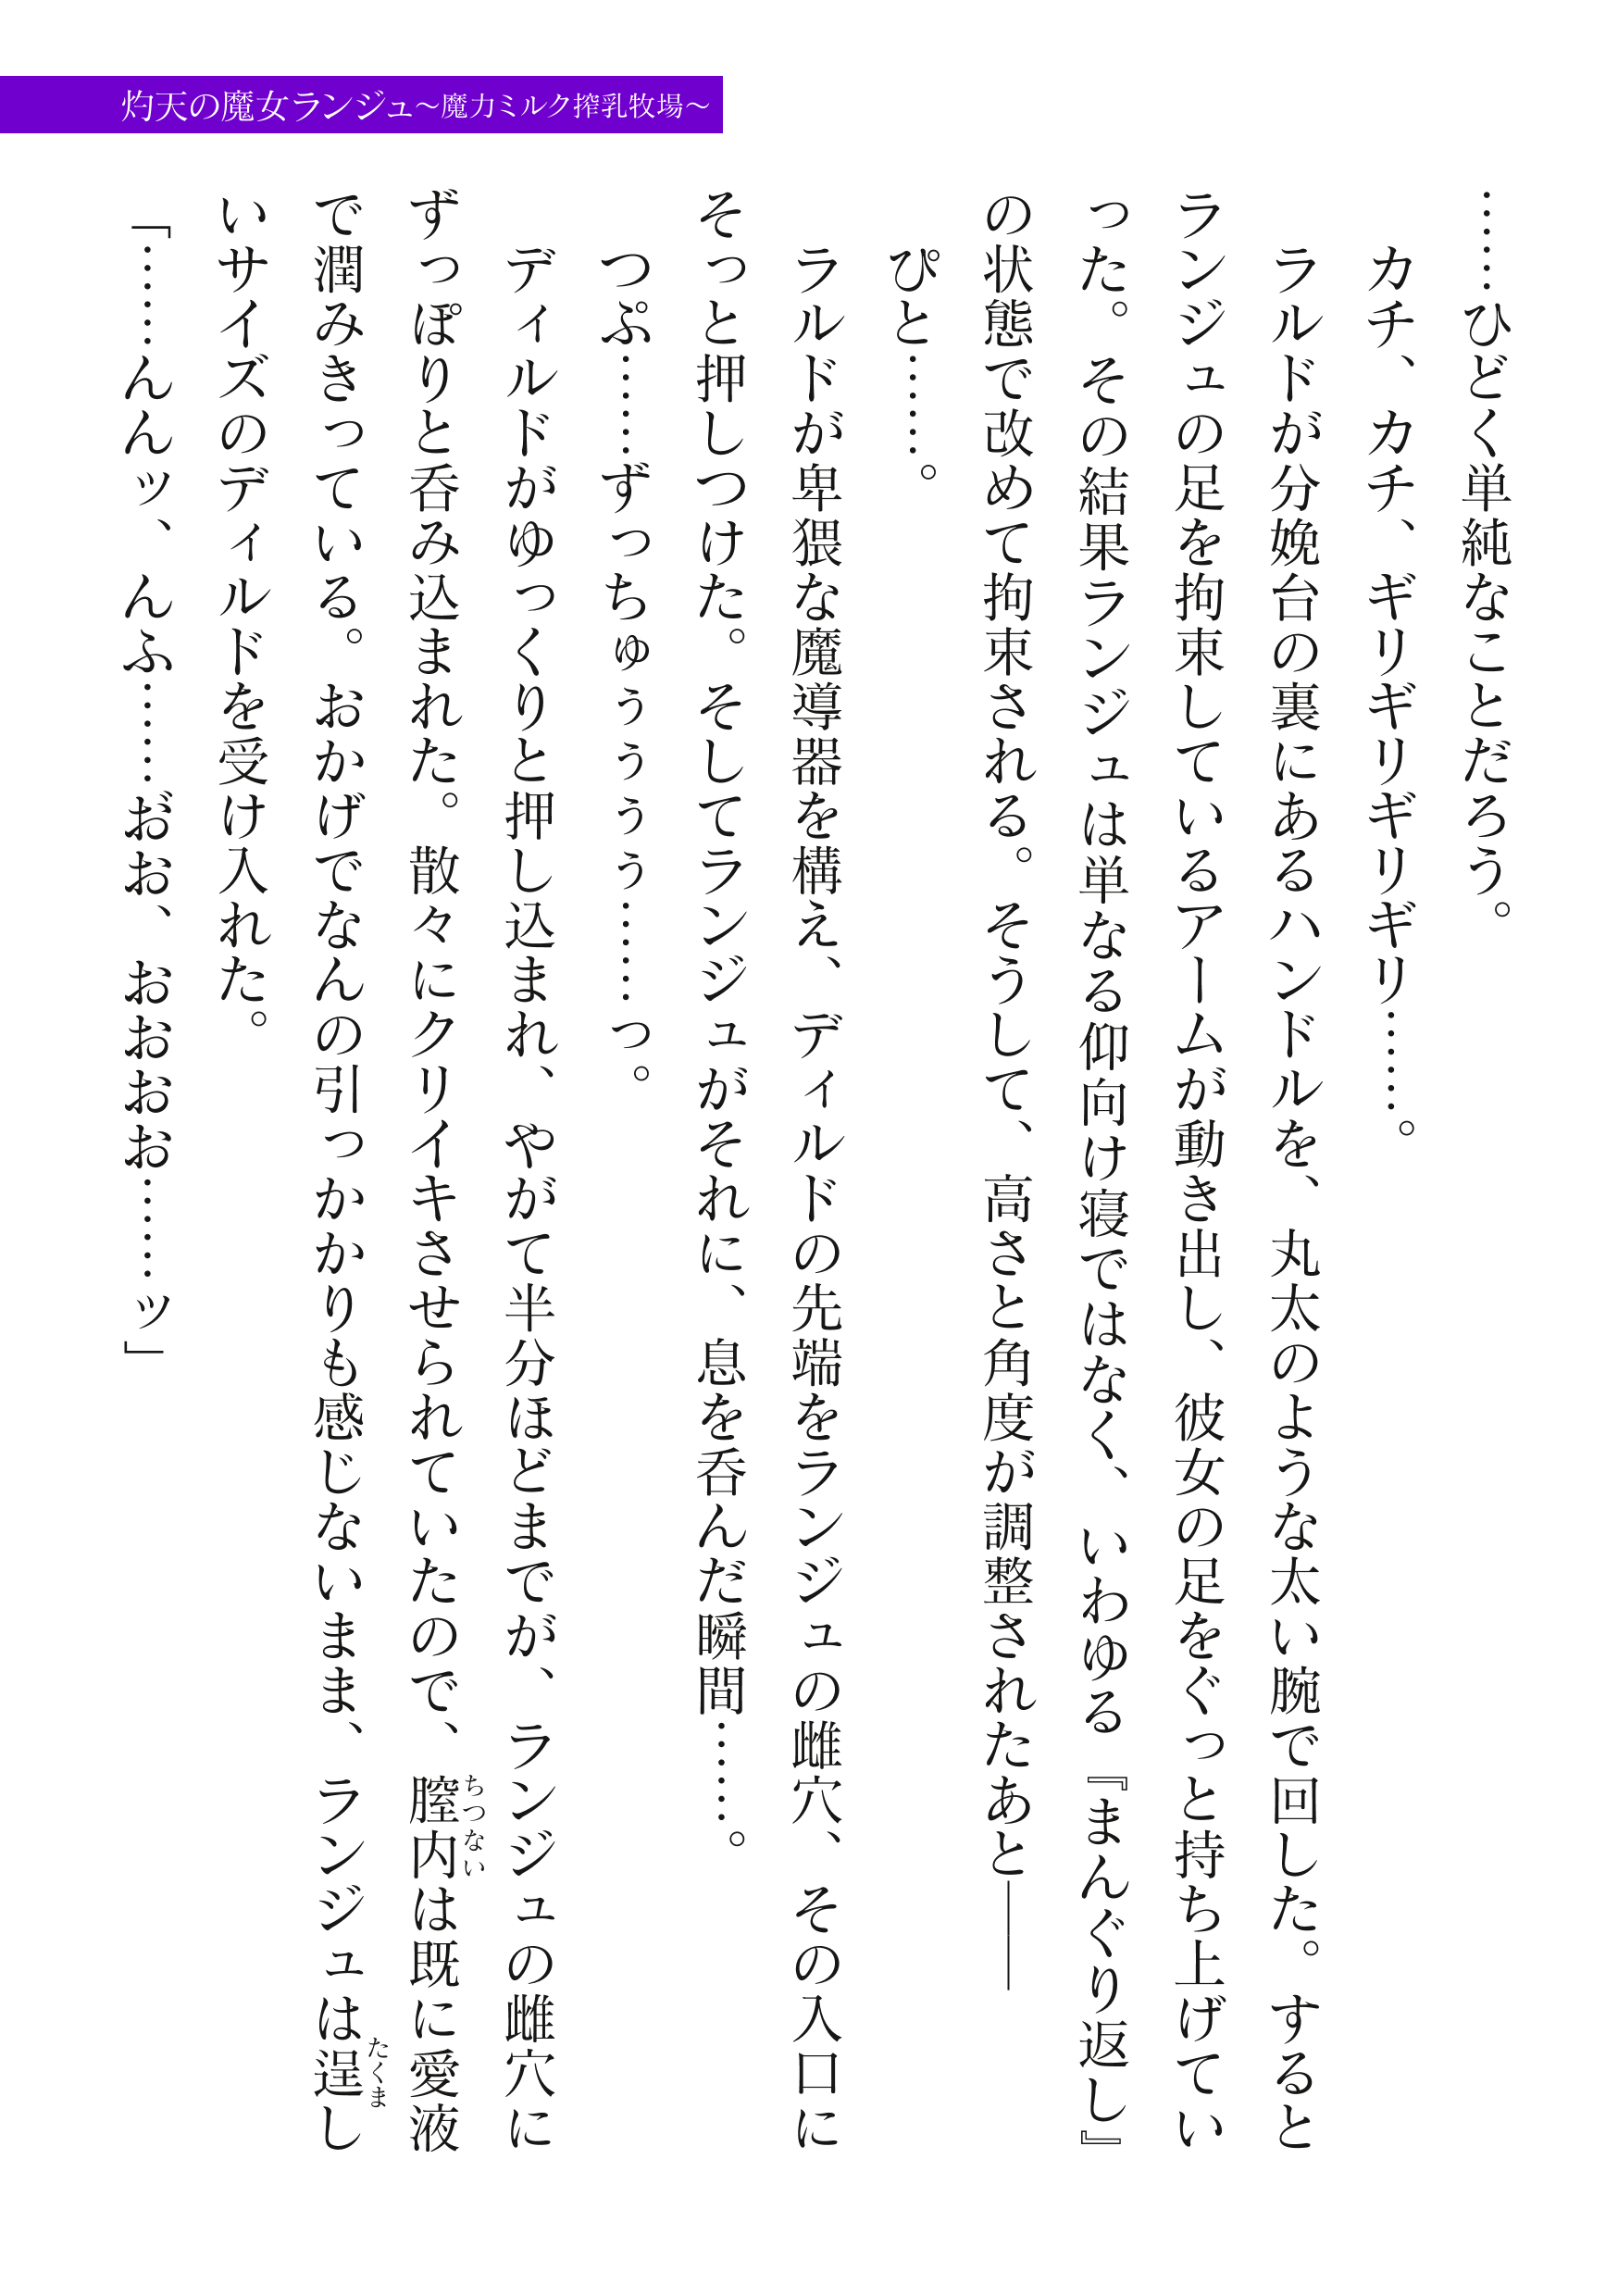 灼天の魔女ランジュ～魔力ミルク搾乳牧場～
……ひどく単純なことだろう。
　カチ、カチ、ギリギリギリギリ……。
　ラルドが分娩台の裏にあるハンドルを、丸太のような太い腕で回した。すると
ランジュの足を拘束しているアームが動き出し、彼女の足をぐっと持ち上げてい
った。その結果ランジュは単なる仰向け寝ではなく、いわゆる『まんぐり返し』
の状態で改めて拘束される。そうして、高さと角度が調整されたあと――
　ぴと……。
　ラルドが卑猥な魔導器を構え、ディルドの先端をランジュの雌穴、その入口に
そっと押しつけた。そしてランジュがそれに、息を呑んだ瞬間……。
　つぷ……ずっちゅぅぅぅぅ……っ。
　ディルドがゆっくりと押し込まれ、やがて半分ほどまでが、ランジュの雌穴に
ずっぽりと呑み込まれた。散々にクリイキさせられていたので、膣内は既に愛液
ちつない
で潤みきっている。おかげでなんの引っかかりも感じないまま、ランジュは逞し
たくま
いサイズのディルドを受け入れた。
「……んんッ、んふ……お゙お、おおおお……ッ」